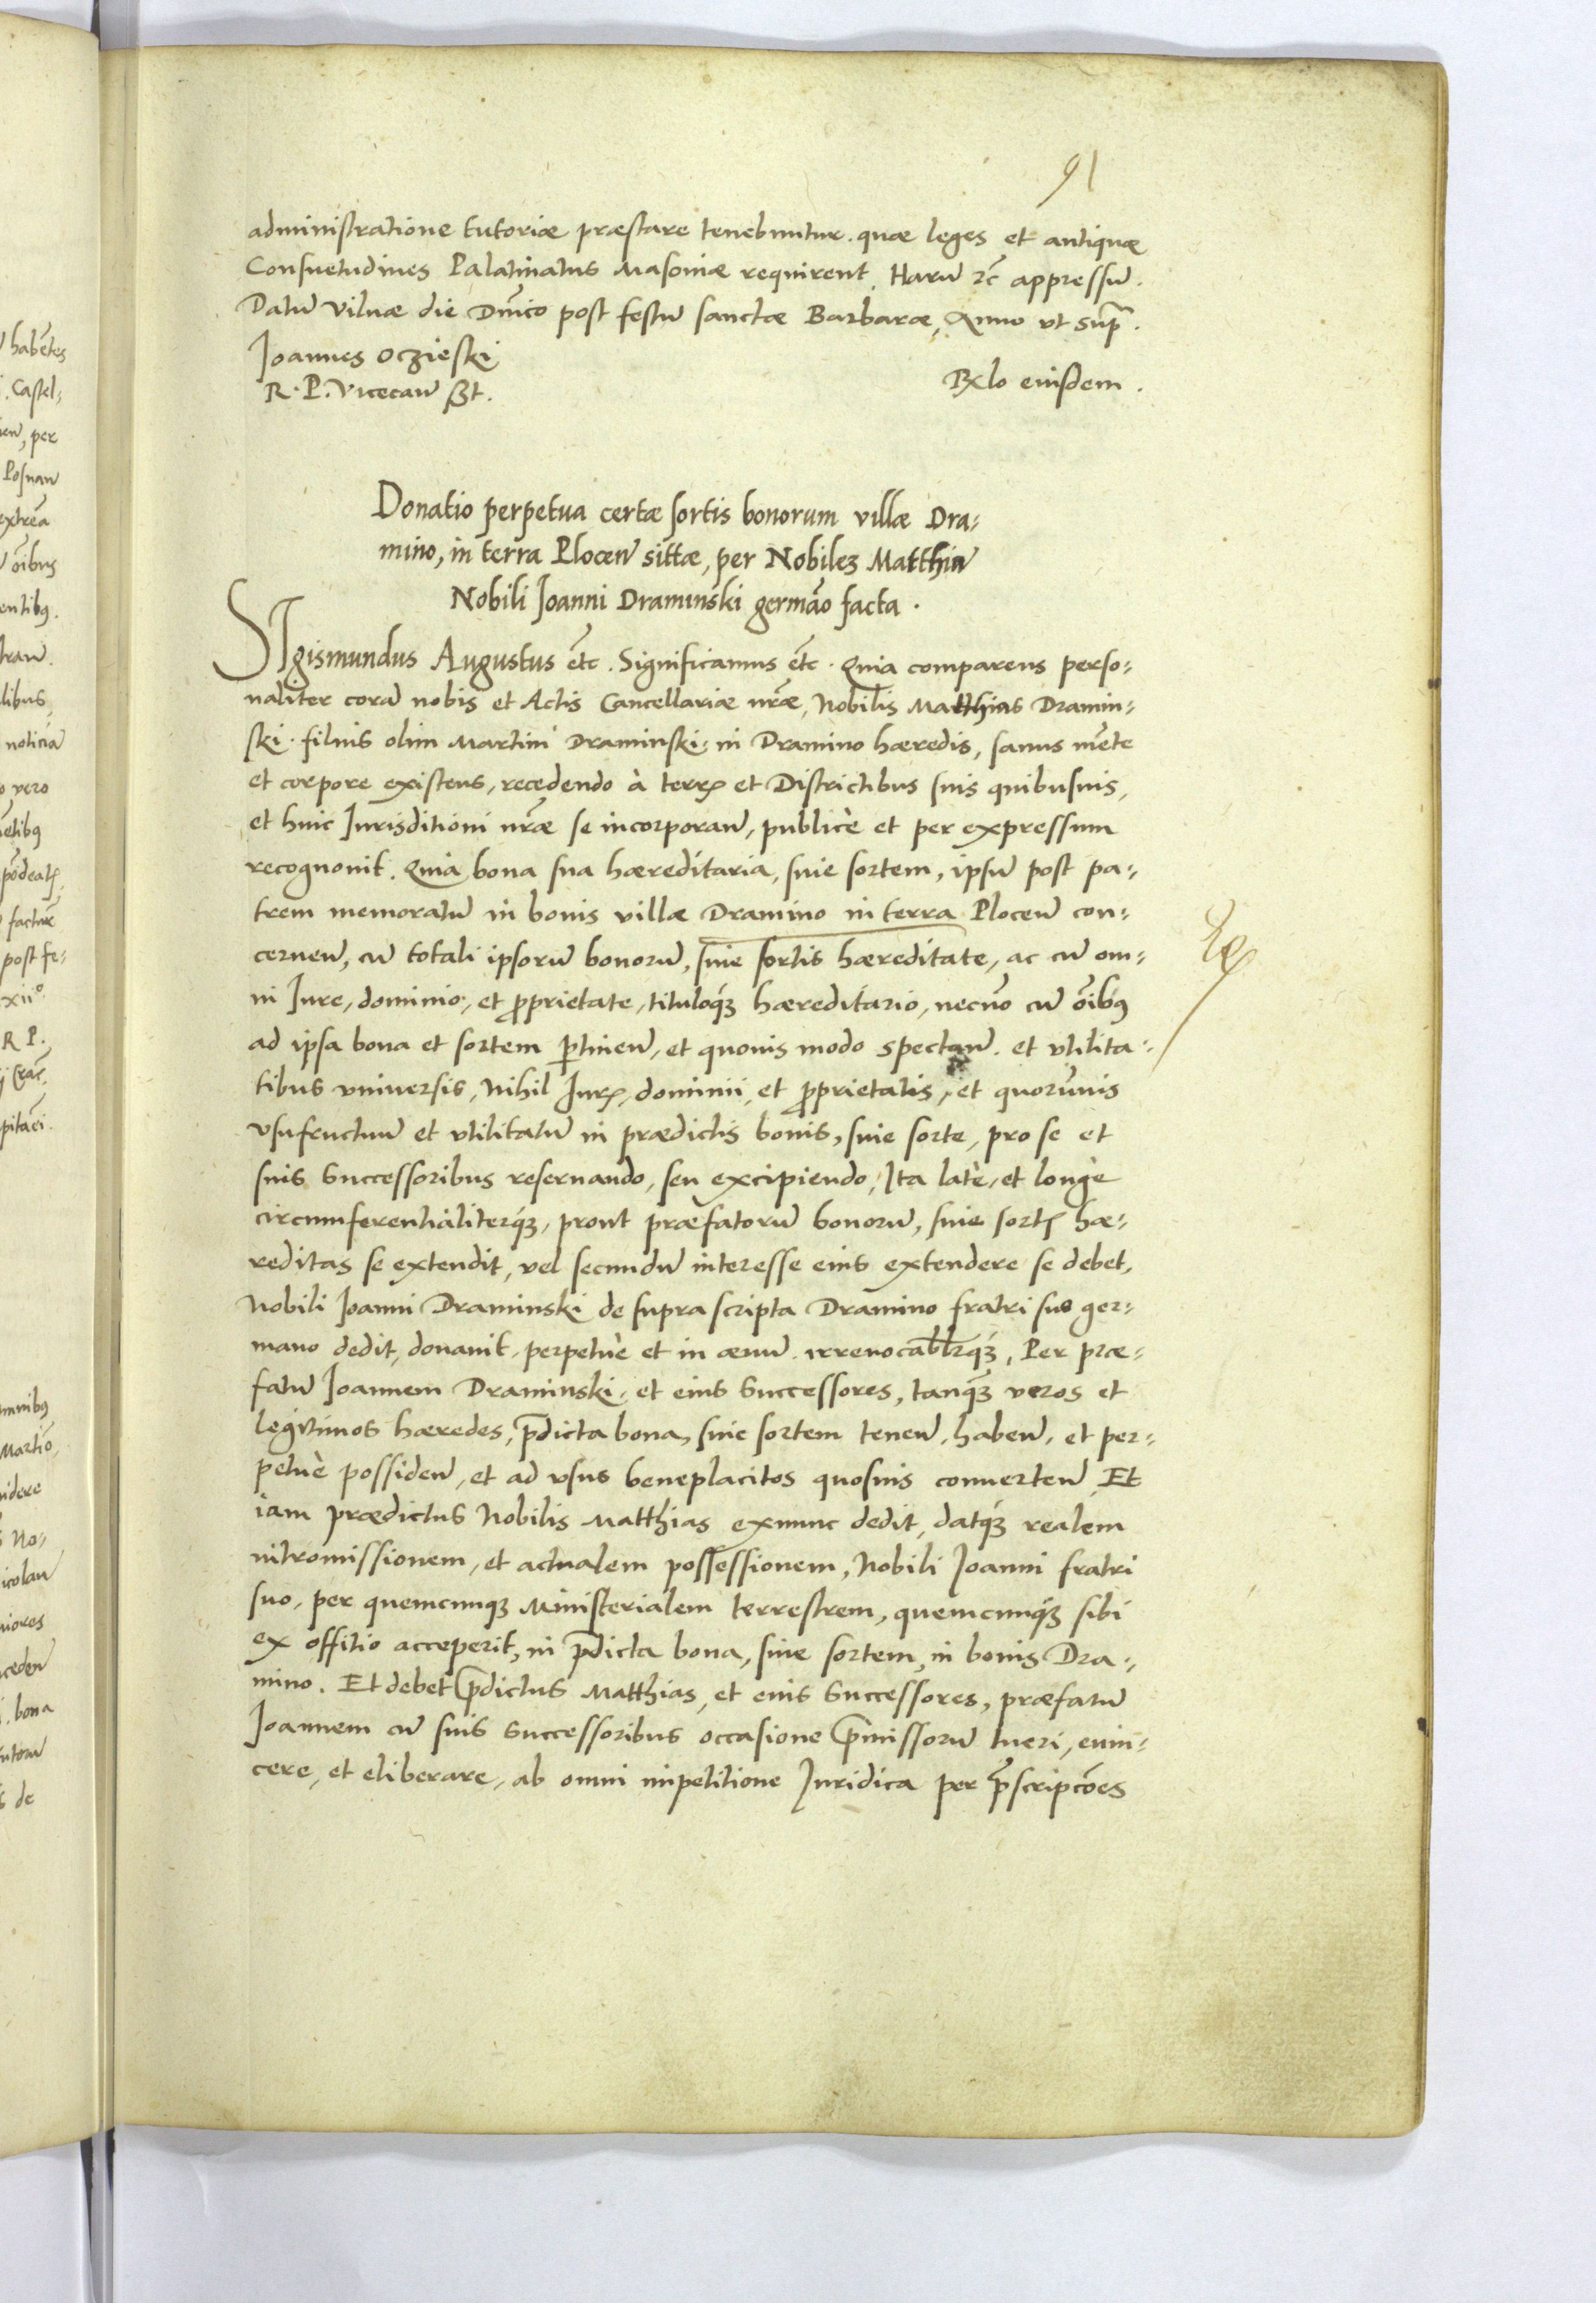 91
administratione tutoriæ præstare tenebuntur. quæ leges et antiquæ
Consuetudines Palatinatus Masoviæ requirent. Harũ ꝛc̃ appressũ.
Datũ Vilnæ die Dñico post festũ sanctæ Barbaræ, Anno vt sup̃.
Joannes Oczieski
R. P. Vicecañ sst.
Rxlo eiusdem.
Donatio perpetua certæ sortis bonorum villæ Dra-
mino, in terra Plocen̄ sittæ, per Nobilez Matthiã
Nobili Joanni Draminski germão facta.
SIgismundus Augustus etc̃. Significamus etc̃. Quia comparens perso-
naliter corã nobis et Actis Cancellariæ nr̃æ, Nobilis Matthias Dramin-
ski. filius olim Martini Draminski. in Dramino hæredis, sanus mẽte
et corpore existens, recedendo à terrꝭ et Districtibus suis quibusuis,
et huic Jurisditioni nr̃æ se incorporañ, publicè et per expressum
recognouit. Quia bona sua hæreditaria, siue sortem, ipsũ post pa-
trem memoratũ in bonis villæ Dramino in terra Plocen̄ con-
cernen̄, cũ totali ipsorũ bonorũ, siue sortis hæreditate, ac cũ om-
ni Jure, dominio, et ꝓprietate, tituloq́ꝫ hæreditario, necnõ cũ õibꝰ
ad ipsa bona et sortem ꝑtinen̄, et quouis modo spectan̄. et vtilita-
tibus vniuersis, Nihil Jurꝭ, dominii, et ꝓprietatis, et quorũuis
vsufructuũ et vtilitatũ in prædictis bonis, siue sorte, pro se et
suis successoribus reseruando, seu excipiendo, Ita latè, et longè
circumferentialiterq́ꝫ, prout præfatorũ bonorũ, siue sortꝭ hæ-
reditas se extendit, vel secundũ interesse eius extendere se debet,
Nobili Joanni Draminski de supra scripta Dramino fratri suo ger-
mano dedit, donauit, perpetuè et in æuũ. irreuocabl̃rq́ꝫ, Per præ-
fatũ Joannem Draminski, et eius successores, tanq̃ꝫ veros et
legitimos hæredes, p̃dicta bona, siue sortem tenen̄, haben̄, et per-
petuè possiden̄, et ad vsus beneplacitos quosuis conuerten̄. Et
iam prædictus Nobilis Matthias exnunc dedit, datq́ꝫ realem
intromissionem, et actualem possessionem, Nobili Joanni fratri
suo, per quemcunqꝫ Ministerialem terrestrem, quemcunq́ꝫ sibi
ex offitio acceperit, in p̃dicta bona, siue sortem, in bonis Dra-
mino. Et debet p̃dictus Matthias, et eius successores, præfatũ
Joannem cũ suis successoribus occasione p̃missorũ tueri, euin-
cere, et eliberare, ab omni impetitione Juridica per p̃scripcões